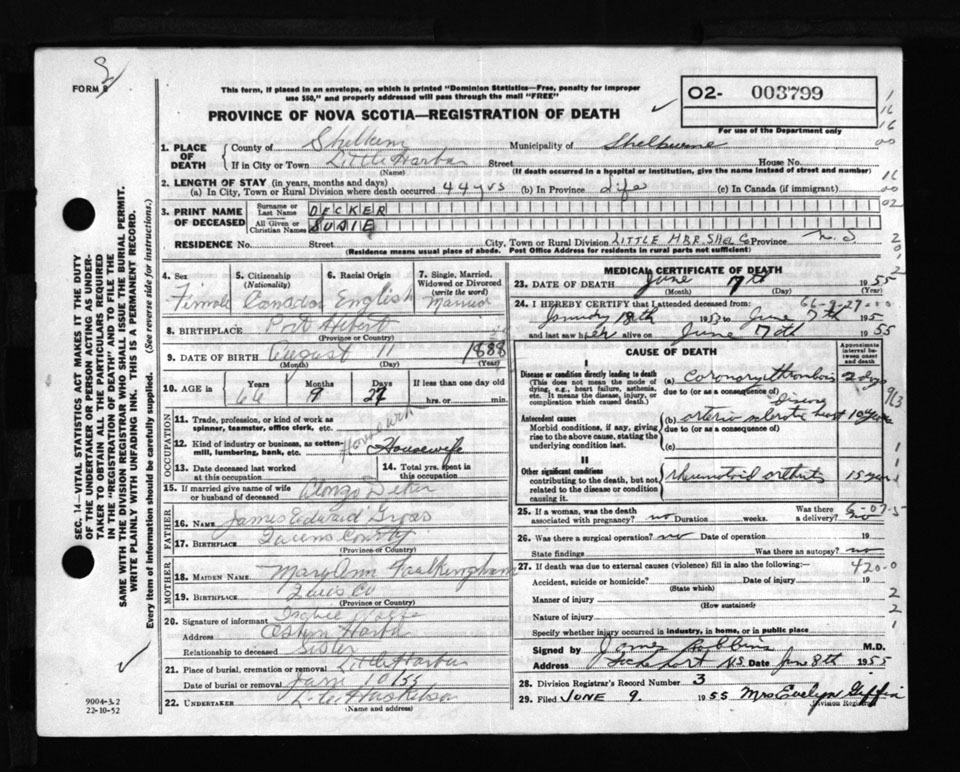 FORM 8
This form, if placed in an envelope, on which is printed "Dominion Statistics—Free, penalty for improper
use $50," and properly addressed will pass through the mail "FREE"
PROVINCE OF NOVA SCOTIA—REGISTRATION OF DEATH
O2- 003799
For use of the Department only
1. PLACE OF DEATH
County of
Municipality of Shelburne
If in City or Town Little Harbor Street House No.
(Name) (If death occurred in a hospital or institution, give the name instead of street and number)
2. LENGTH OF STAY (in years, months and days)
(a) In City, Town or Rural Division where death occurred 44 yrs (b) In Province Life (c) In Canada (if immigrant)
3. PRINT NAME OF DECEASED
Surname or Last Name DECKER
All Given or Christian Names SUSIE
RESIDENCE No. Street City, Town or Rural Division LITTLE HBR SHEL Co Province N.S
(Residence means usual place of abode. Post Office Address for residents in rural parts not sufficient)
SEC. 14—VITAL STATISTICS ACT MAKES IT THE DUTY
OF THE UNDERTAKER OR PERSON ACTING AS UNDER-
TAKER TO OBTAIN ALL THE PARTICULARS REQUIRED
IN THE "REGISTRATION OF DEATH" AND TO FILE THE
SAME WITH THE DIVISION REGISTRAR WHO SHALL ISSUE THE BURIAL PERMIT.
WRITE PLAINLY WITH UNFADING INK. THIS IS A PERMANENT RECORD.
Every item of information should be carefully supplied. (See reverse side for instructions.)
4. Sex
5. Citizenship (Nationality)
6. Racial Origin English
7. Single, Married, Widowed or Divorced (write the word) Married
8. BIRTHPLACE Port Hebert
(Province or Country)
9. DATE OF BIRTH August 11 1888
(Month) (Day) (Year)
10. AGE in Years 66 Months 9 Days 27 If less than one day old
hrs. or min.
OCCUPATION
11. Trade, profession, or kind of work as
spinner, teamster, office clerk, etc.
12. Kind of industry or business, as cotton-
mill, lumbering, bank, etc. Housewife
13. Date deceased last worked
at this occupation
14. Total yrs. spent in
this occupation
15. If married give name of wife
or husband of deceased Alonzo
FATHER
16. NAME James Edward
17. BIRTHPLACE Queens
(Province or Country)
MOTHER
18. MAIDEN NAME Mary Ann Faulkingham
19. BIRTHPLACE Co
(Province or Country)
20. Signature of informant
Address
Relationship to deceased Sister
21. Place of burial, cremation or removal Little Harbor
Date of burial or removal 10/55
22. UNDERTAKER
(Name and address)
9004-3.2
22-10-52
MEDICAL CERTIFICATE OF DEATH
23. DATE OF DEATH June 7th 1955
(Month) (Day)
24. I HEREBY CERTIFY that I attended deceased from: 66-9-27
18th 195 to June 7th 195
and last saw her alive on June 7th 1955
CAUSE OF DEATH
Approximate interval between onset and death
I
Disease or condition directly leading to death
(This does not mean the mode of
dying, e.g., heart failure, asthenia,
etc. It means the disease, injury, or
complication which caused death.)
(a) coronary thrombosis 2 days
due to (or as a consequence of)
Antecedent causes
Morbid conditions, if any, giving
rise to the above cause, stating the
underlying condition last.
(b) heart disease 10 years
due to (or as a consequence of)
(c)
II
Other significant conditions
contributing to the death, but not
related to the disease or condition
causing it.
rheumatoid arthritis 15 years
25. If a woman, was the death
associated with pregnancy? no Duration weeks. Was there a delivery? no
26. Was there a surgical operation? no Date of operation 19
State findings Was there an autopsy? no
27. If death was due to external causes (violence) fill in also the following:— 420-0
Accident, suicide or homicide? Date of injury 19
(State which)
Manner of injury
(How sustained)
Nature of injury
Specify whether injury occurred in industry, in home, or in public place
Signed by James Robbins M.D.
Address Lockeport N.S. Date June 8th 1955
28. Division Registrar's Record Number 3
29. Filed JUNE 9. 1955 Mrs Evelyn Giffin
Division Registrar